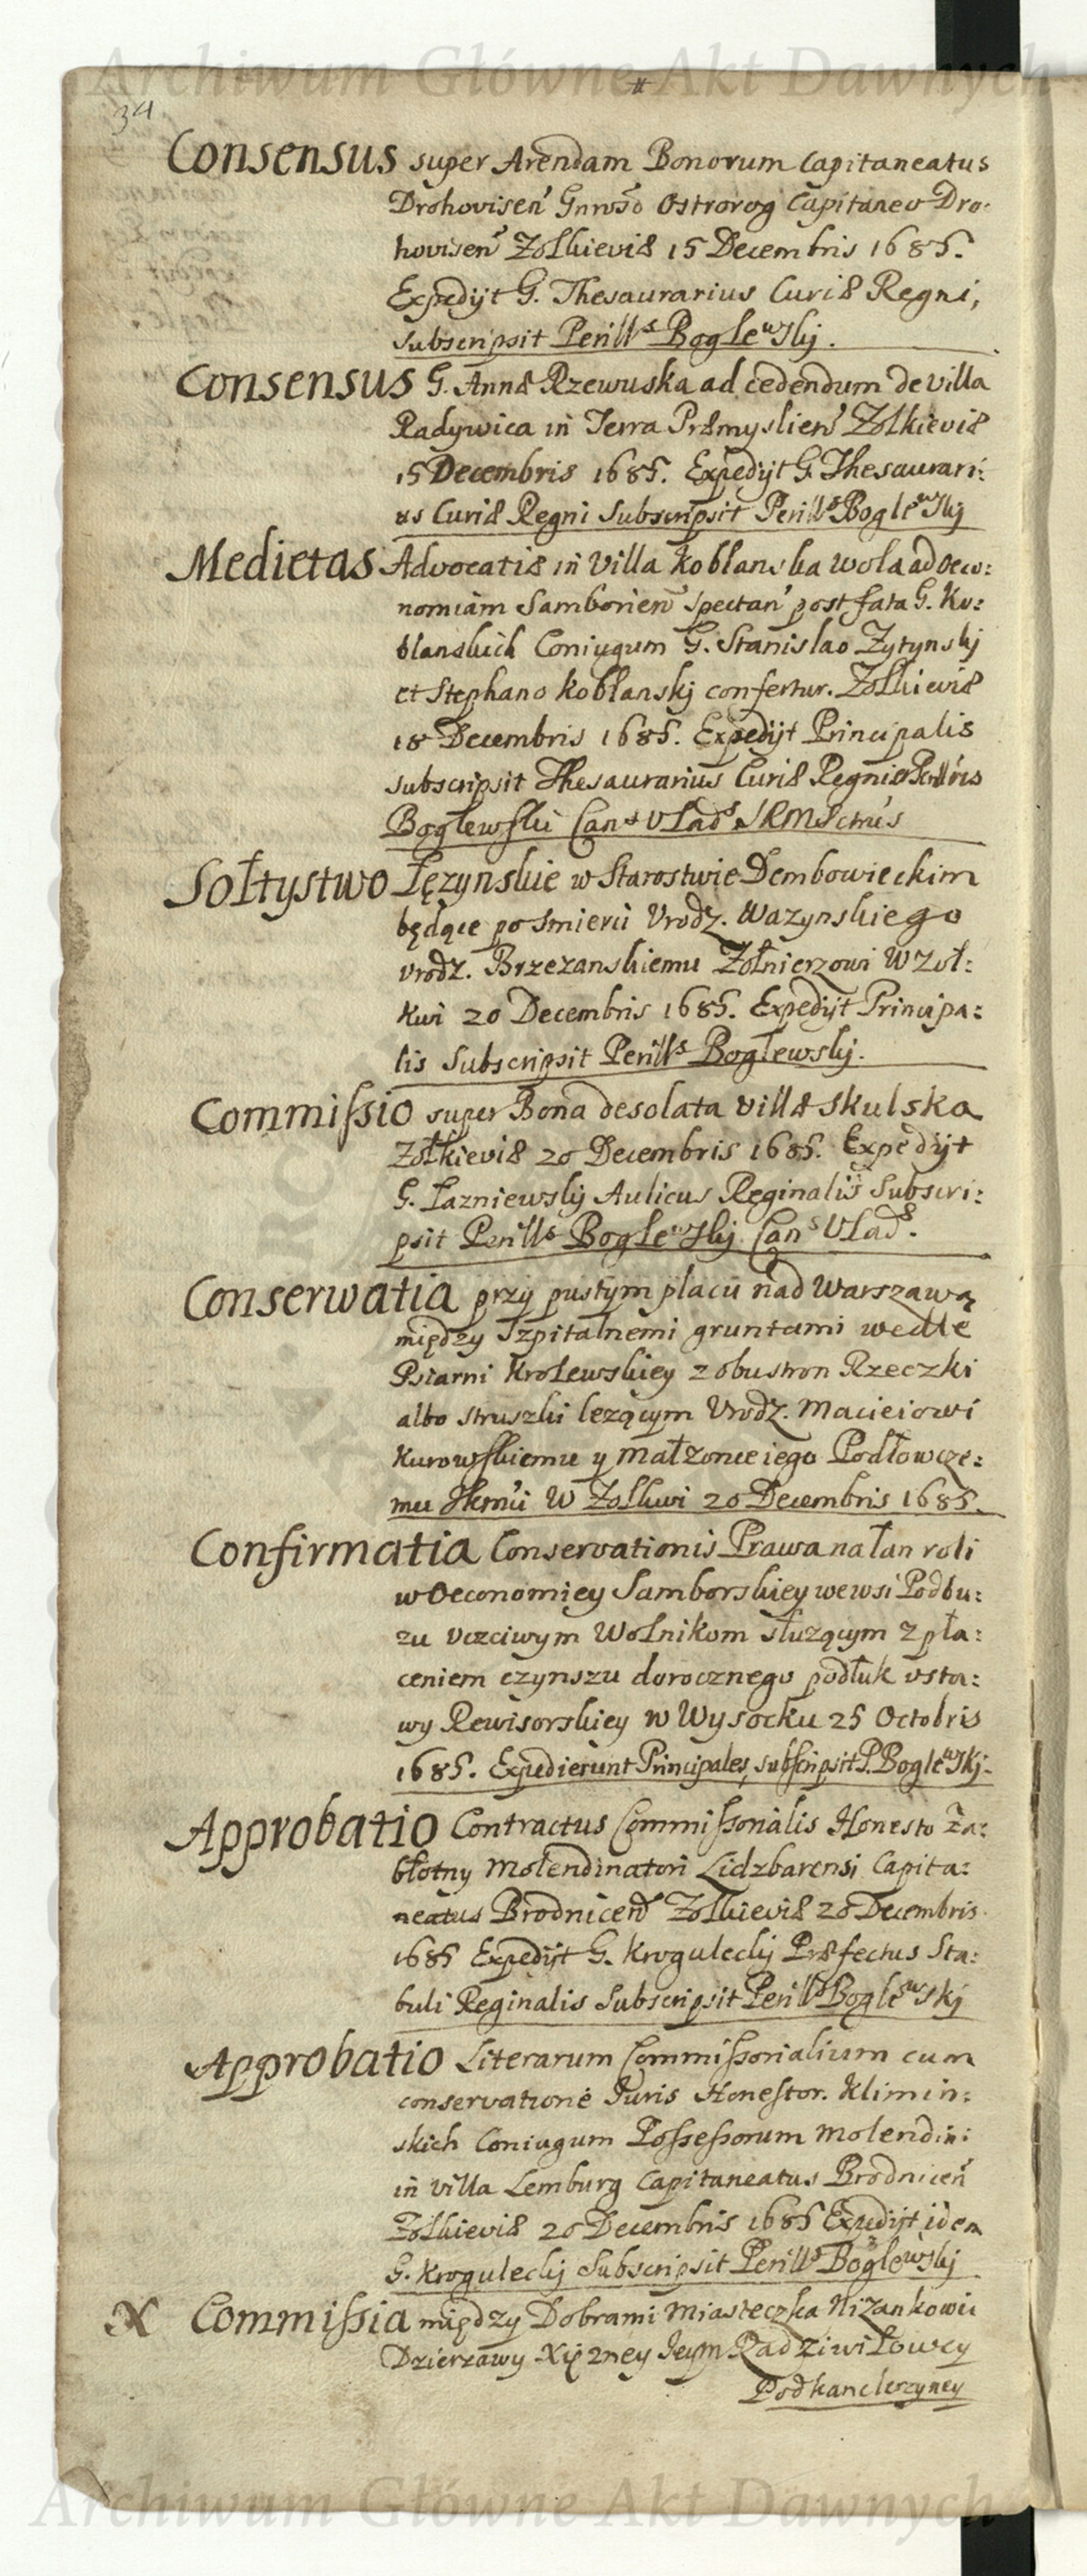 Archiwum Główne Akt Dawnych
34
#
Consensus super Arendam Bonorum Capitaneatus
Drohovisen Ostrorog Capitaneo Dro:
hovisen Zolkieviæ 15 Decembris 1685.
Expedijt G. Thesaurarius Curiæ Regni,
subscripsit Perill^s Boglewskj.
Consensus G. Annæ Rzewuska ad cedendum de villa
Radywica in Terra Præmyslien Zolkieviæ
15 Decembris 1685. Expedijt G. Thesaurari:
us Curiæ Regni Subscripsit Perill^s Boglewskj
Medietas Advocatiæ in Villa Koblanska wola ad Oeco:
nomiam Samborien spectan post fata G. Ko:
blanskich Coniugum G. Stanislao Zytynskj
et Stephano Koblanskj confertur. Zolkieviæ
18 Decembris 1685. Expedijt Principalis
subscripsit Thesaurarius Curiæ Regni
Boglewski Can^s Vlad^s SRM
Sołtystwo Łęzynskie w Starostwie Dembowieckim
będące po Smierci Vrodz. Wazynskiego
vrodz. Brzezanskiemu Zołnierzowi W Zoł:
kwi 20 Decembris 1685. Expedijt Principa:
lis Subscripsit Perill^s Boglewskj.
Commissio super Bona desolata villæ Skulska
Zołkieviæ 20 Decembris 1685. Expedijt
G. Łazniewskj Aulicus Reginalis Subscri:
psit Perill^s Boglewskj Can^s Vlad^s.
Conserwatia przy pustym placu nad Warszawą
między Szpitalnemi gruntami wedle
Psiarni Krolewskiey z obustron Rzeczki
albo struszki lezącym Vrodz. Macieiowi
Kurowskiemu y Małzonce iego Podłowcze:
mu W Zolkwi 20 Decembris 1685.
Confirmatia Conservationis Prawa na łan roli
w Oeconomiey Samborskiey we wsi Podbu:
zu Vczciwym Wolnikom słuzącym z pła:
ceniem czynszu dorocznego podłuk vsta:
wy Rewisorskiey w Wysocku 25 Octobris
1685. Expedierunt Principales, subscripsit P. Boglewskj.
Approbatio Contractus Commissorialis Honesto Za:
błotny Molendinatori Lidzbarensi Capita:
neatus Brodnicen Zolkieviæ 20 Decembris
1685 Expedijt G. Kroguleckj Præfectus Sta:
buli Reginalis Subscripsit Perill^s Boglewskj
Approbatio Literarum Commissorialium cum
conservatione Juris Honestor. Klimin:
skich Coniugum Possessorum Molendini
in villa Lemburg Capitaneatus Brodnicen
Zolkieviæ 20 Decembris 1685 Expedijt idem
G. Kroguleckj Subscripsit Perill^s Boglewskj
X Commissia między Dobrami Miasteczka Nizankowic
Dzierzawy Xięzney Jeym Radziwiłowey
Podkanclerzyney
Archiwum Główne Akt Dawnych